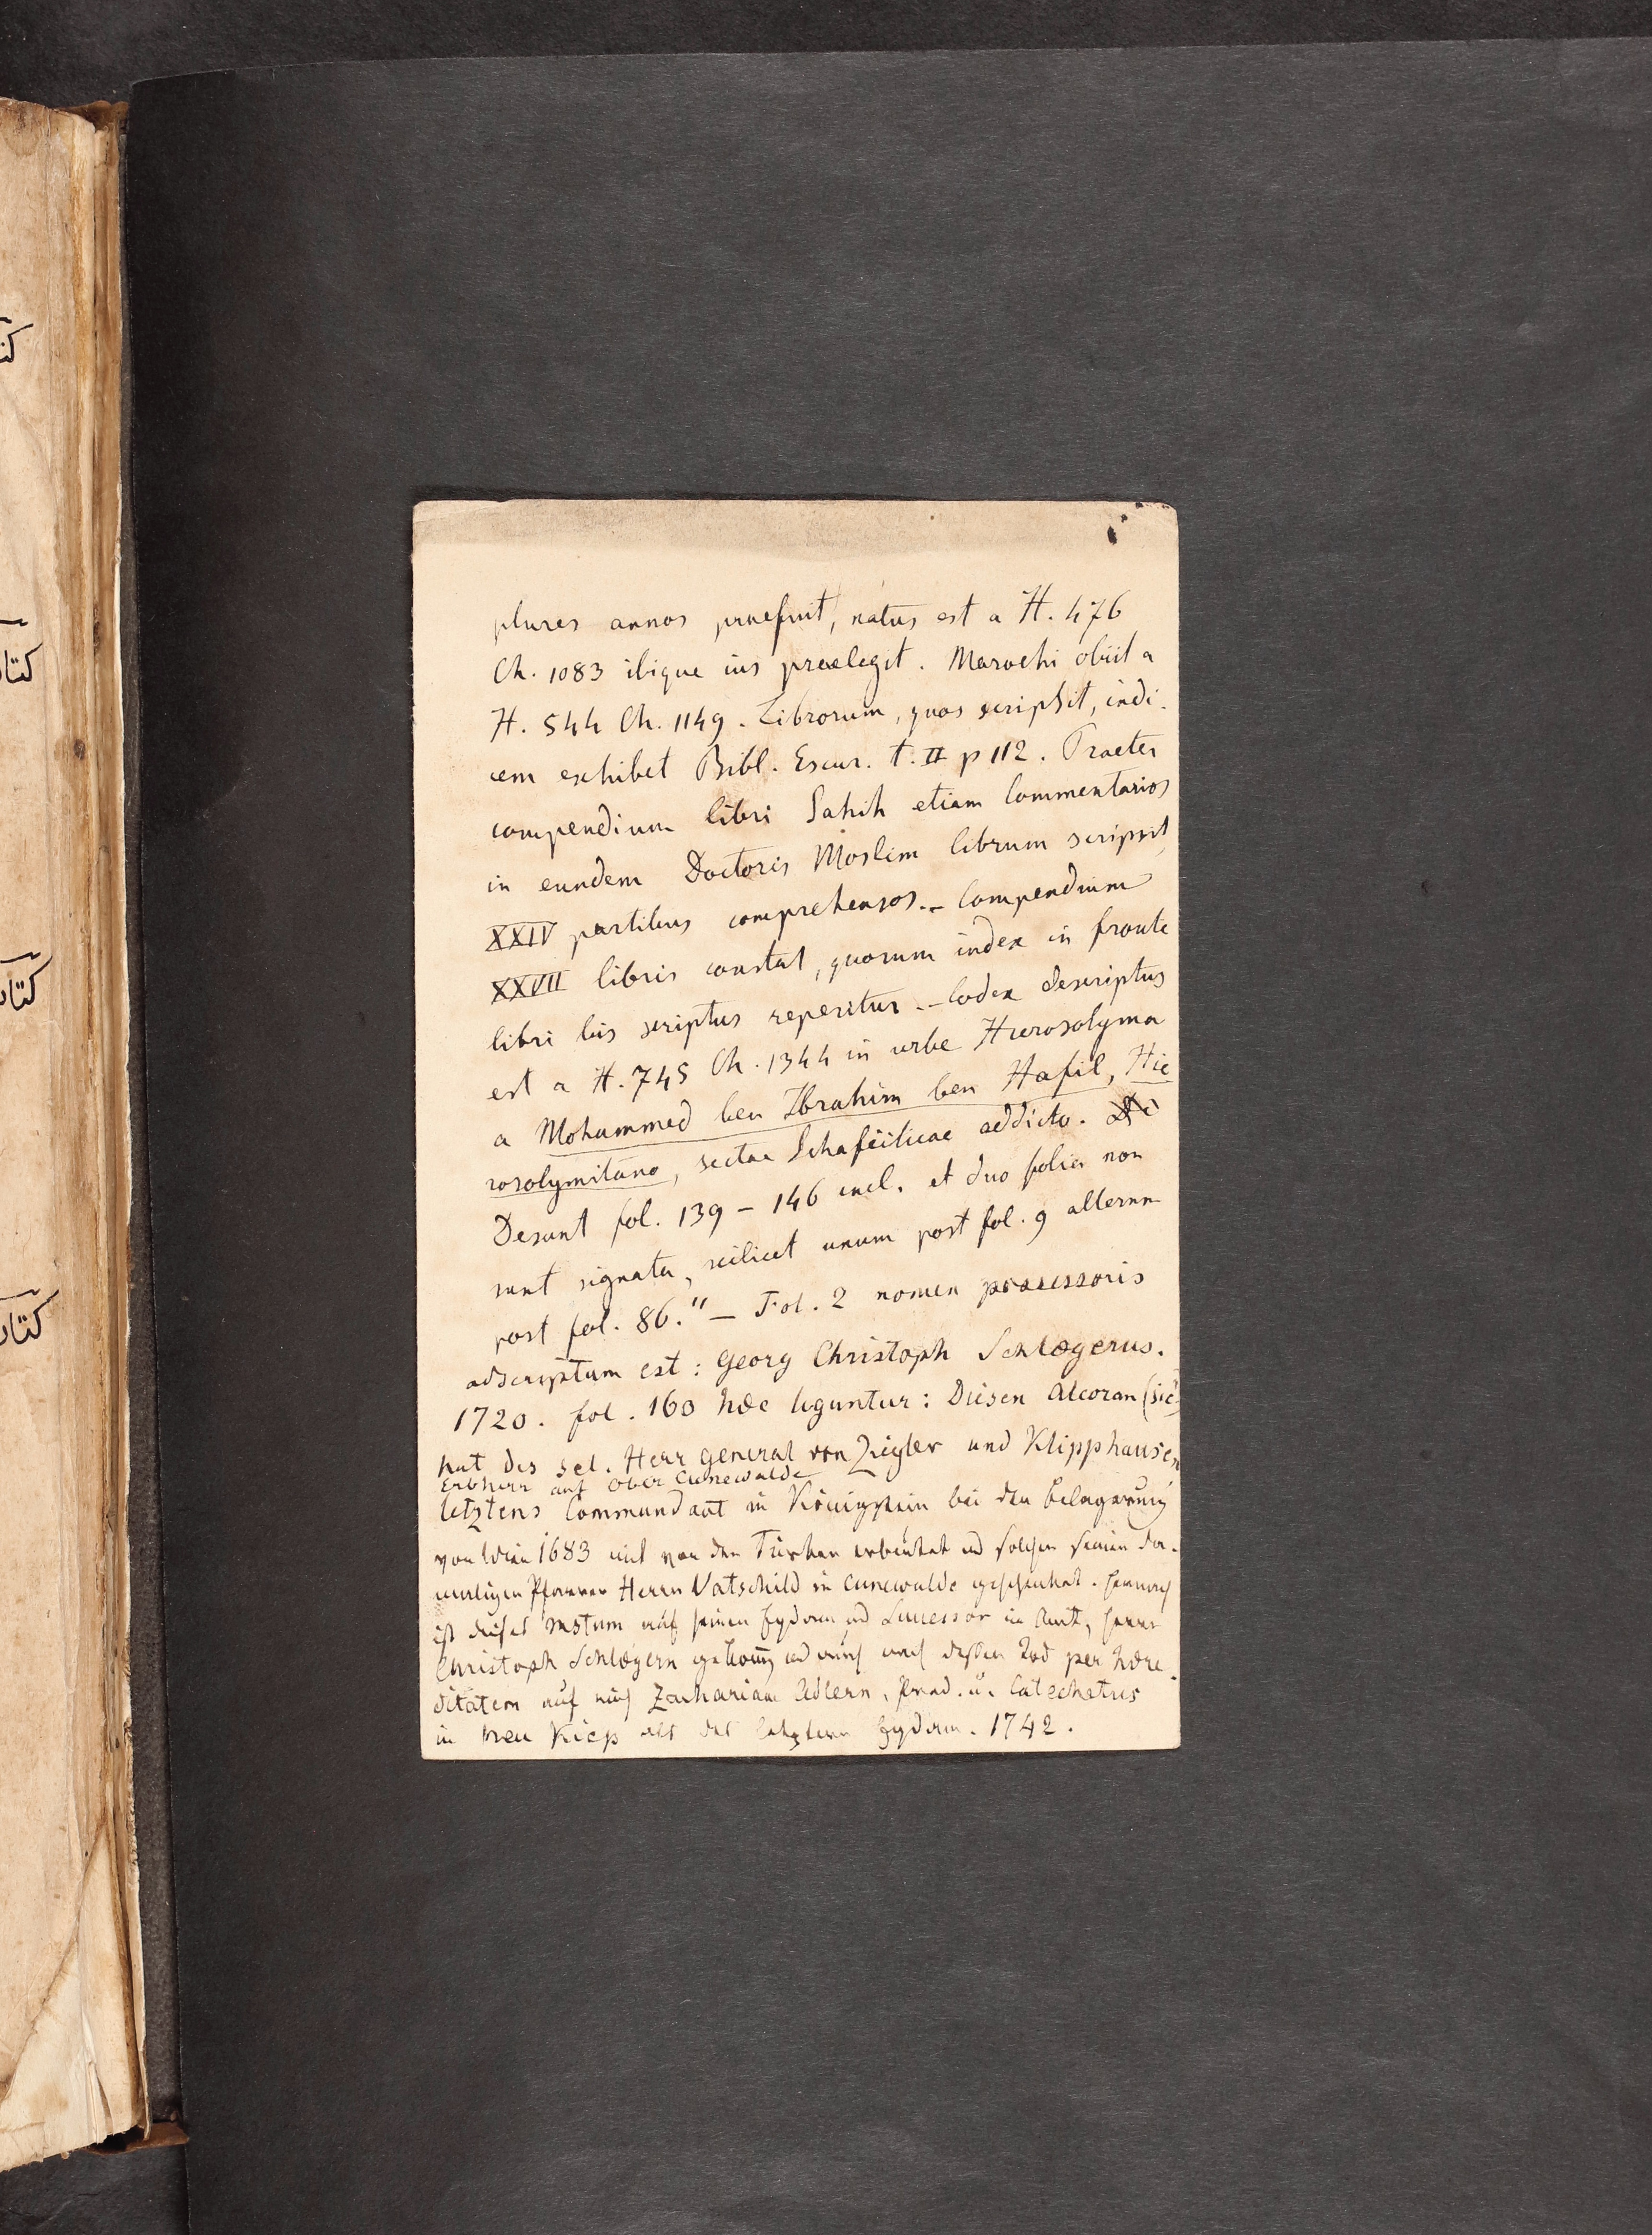 كتا
كتا
كتا
plures annos praefuit, natus est a H. 476
Ch. 1083 ibique ius praelegit. Marochi obiit a
H. 544 Ch. 1149. Librorum, quos scripsit, indi-
cem exhibet Bibl. Escur. t. II p 112. Praeter
compendium libri Sahih etiam Commentarios
in eundem Doctoris Moslim librum scripsit,
XXIV partibus comprehensos. – Compendium
XXVII libris constat, quorum index in fronte
libri bis scriptus reperitur. – Codex descriptus
est a H. 745 Ch. 1344 in urbe Hierosolyma
a Mohammed ben Ibrahim ben Hafil, Hie
rosolymitano, sectae Schafeiiticae addicto.
Desunt fol. 139 – 146 incl. et duo folia non
sunt signata, scilicet unum post fol. 9 alterum
post fol. 86." – Fol. 2 nomen possessoris
adscriptum est: Georg Christoph Schlœgerus.
1720. fol. 160 hæc leguntur: Diesen Alcoran (sic)
hat des sel. Herr General von Ziegler und Klipphausen
Erbherr auf Ober Cunewalde
letztens Commandant in Königstein bei der Belagerung
von Wien 1683 mit von den Türken erbeutet und solchen seinem da-
maligen Pfarrer Herrn Vatschild in Cunewalde geschenket. Hernach
ist dieses auf seinen Eydam und Successor im Amt, Herrn
Christoph Schlœgern und auch nach dessen Tod per hære
ditatem auf mich Zachariam Adlern, Pred. u. Catechetus
in als des letztern Eydam. 1742.